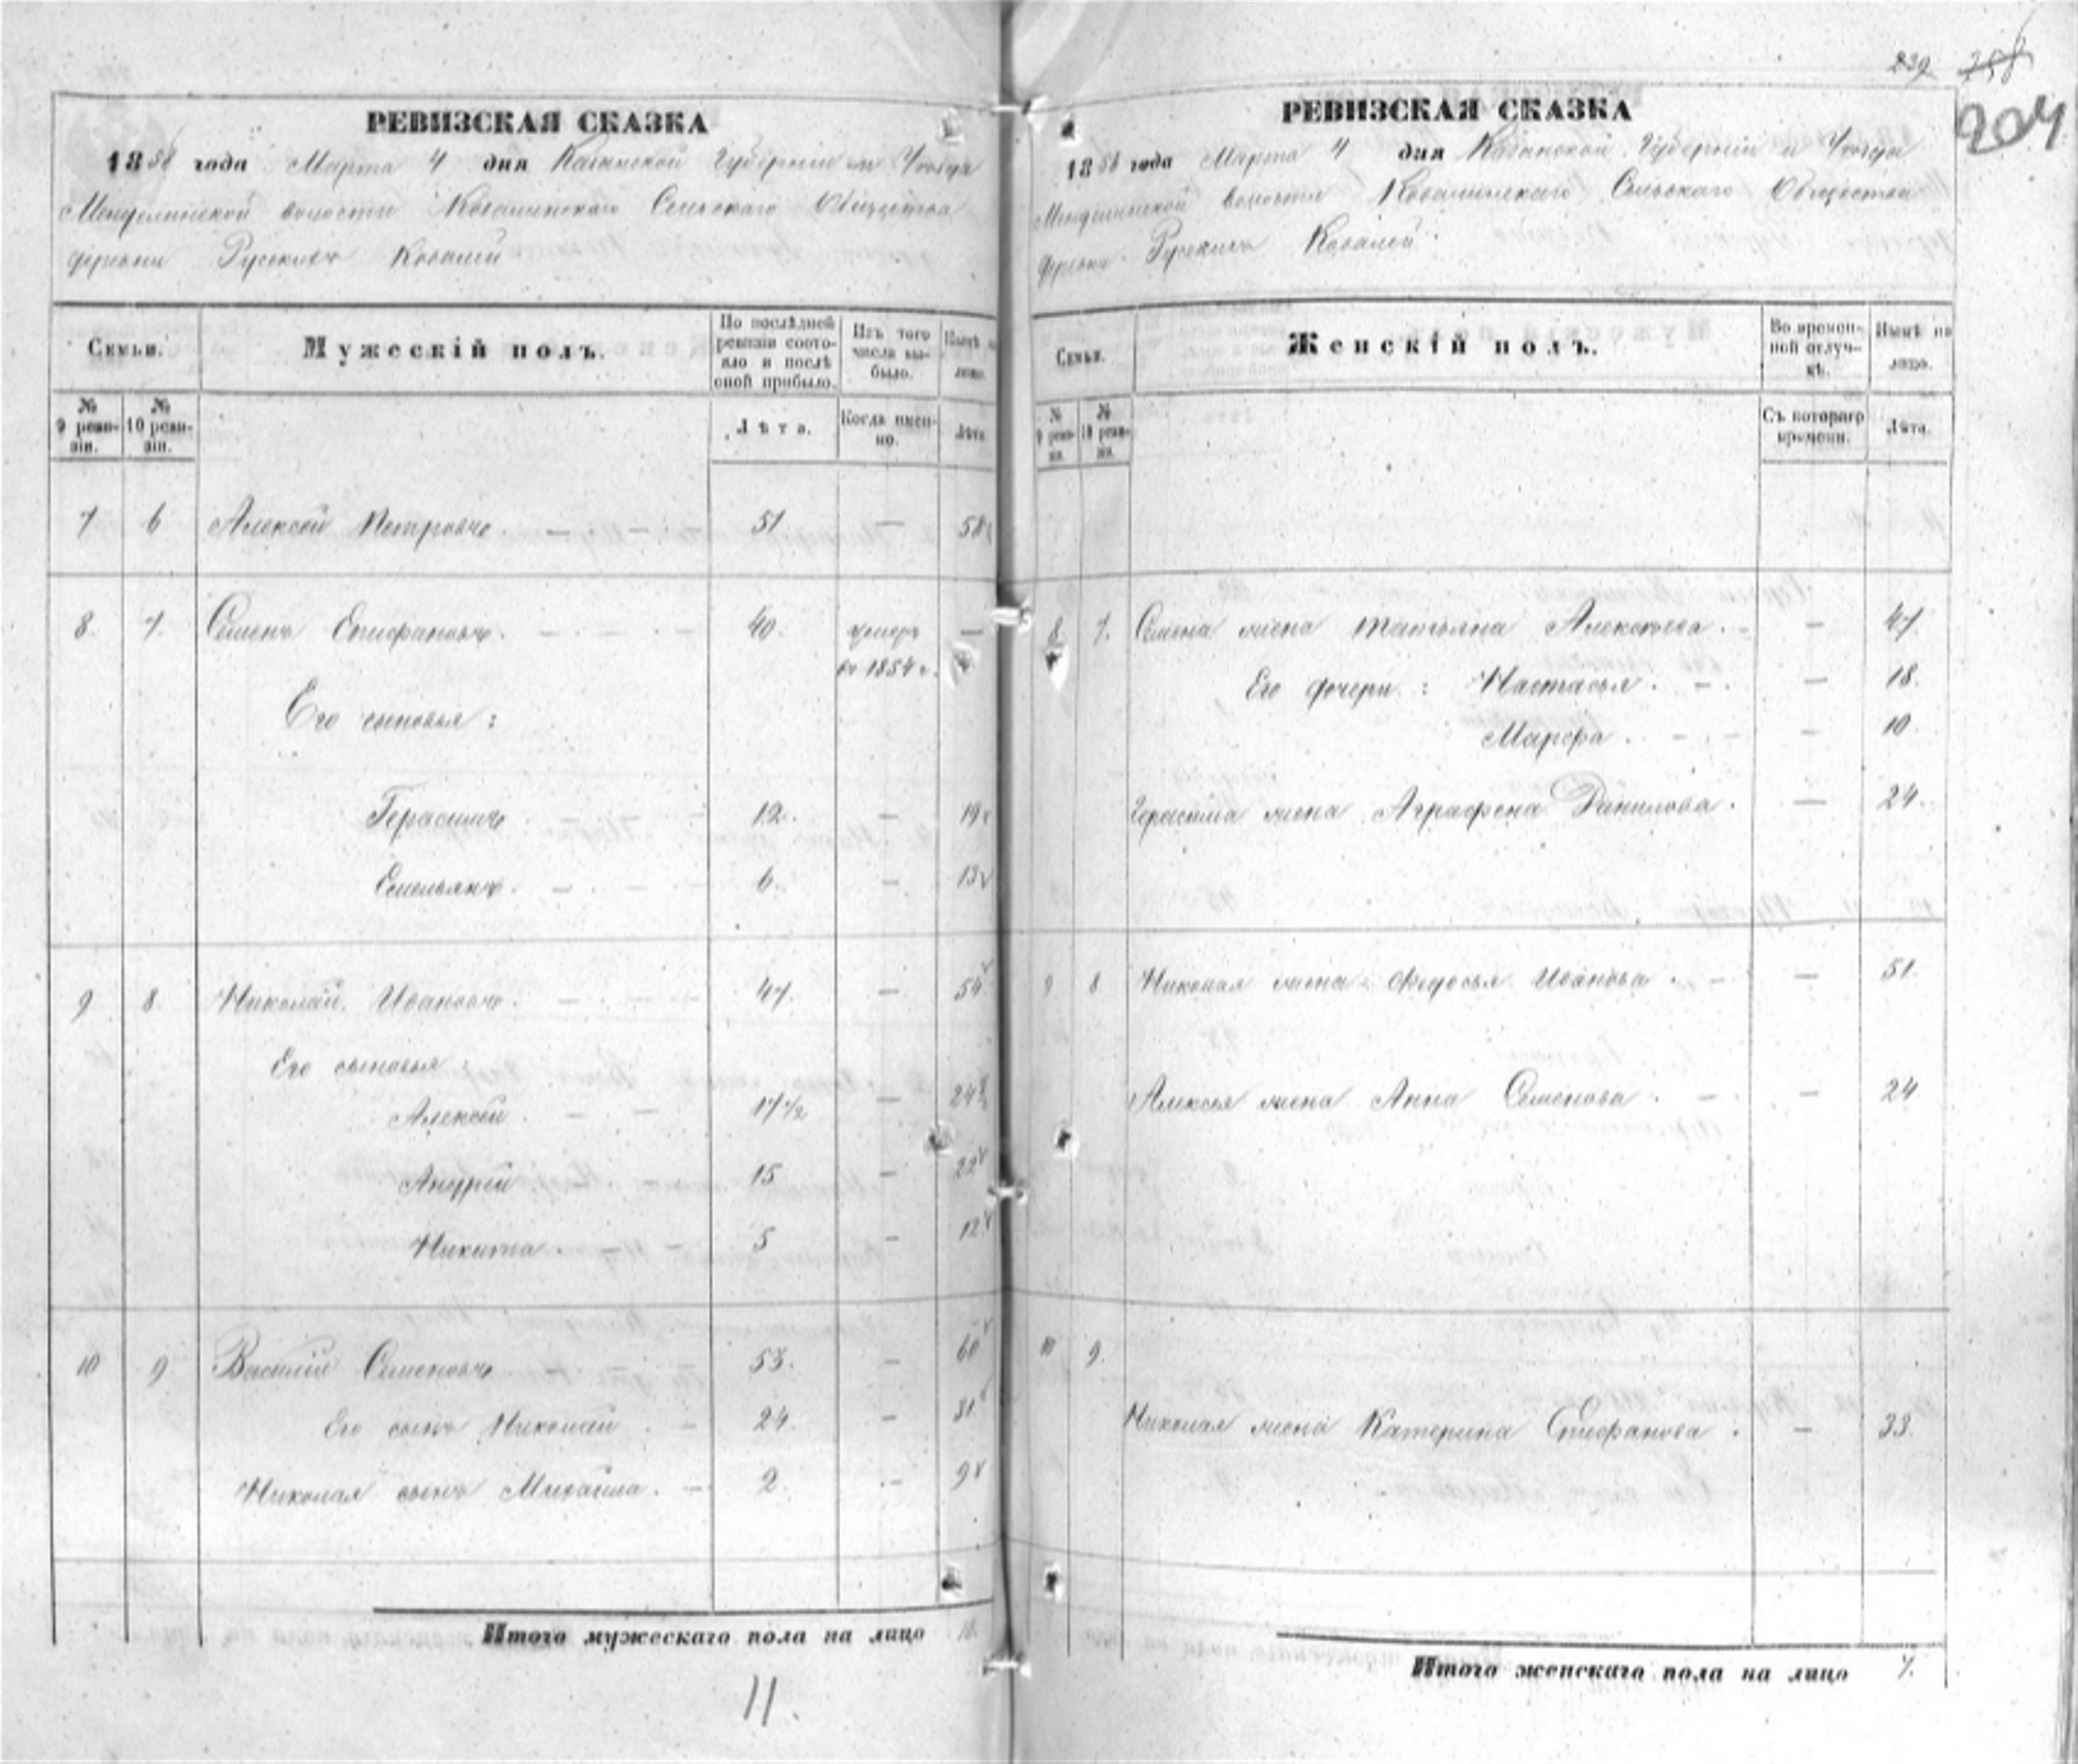 239 258
204
РЕВИЗСКАЯ СКАЗКА
1858 года Марта 4 дня Казанской Губернии и Уѣзда
волости Ковалинскаго Сельскаго Общества
деревни Русскихъ Ковалей
Семьи. Мужескій полъ. По послѣдней ревизіи состояло и послѣ оной прибыло. Изъ того числа выбыло. Нынѣ на лицо.
№ 9 ревизіи. № 10 ревизіи. Лѣта. Когда именно. Лѣта.
7 6 Алексей Петровъ. — — 51 — 58
8. 7. Семенъ Епифановъ. — — 40. умеръ —
въ 1854 г.
Его сыновья:
Герасимъ — — 12. — 19
Емельянъ. — — 6. — 13
9 8. Николай Ивановъ. — — 47. — 54
Его сыновья:
Алексей — — 17½ — 24½
Андрей — — 15 — 22
Никита — — 5 — 12
10 9 Василий Семеновъ — — 53. — 60
Его сынъ Николай — 24. — 31
Николая сынъ Михайла. — 2. — 9
Итого мужескаго пола на лицо
11.
РЕВИЗСКАЯ СКАЗКА
1858 года Марта 4 дня Казанской Губернии и Уѣзда
волости Ковалинскаго Сельскаго Общества
деревни Русскихъ Ковалей.
Семьи. Женскій полъ. Во временной отлучкѣ. Нынѣ на лицо.
№ 9 ревизіи. № 10 ревизіи. Съ котораго времени. Лѣта.
8 7. Семена жена Татьяна Алексѣева. — — 47.
Его дочери: Настасья. — — 18.
Марфа. — — — 10
Герасима жена Аграфена Данилова. — 24.
9 8 Николая жена Федосья Иванова — — 51.
Алексея жена Анна Семенова. — — 24
10 9.
Николая жена Катерина Епифанова. — 33.
Итого женскаго пола на лицо 7.